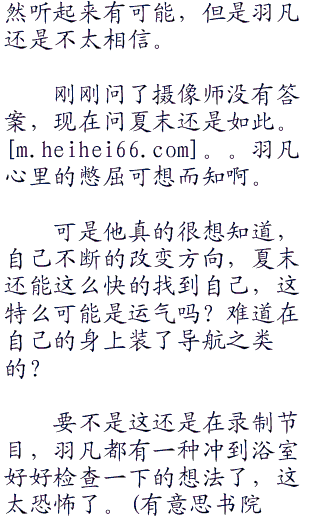 然听起来有可能，但是羽凡
还是不太相信。
刚刚问了摄像师没有答
案，现在问夏末还是如此。
[m.heihei66.com]。。羽凡
心里的憋屈可想而知啊。
可是他真的很想知道，
自己不断的改变方向，夏末
还能这么快的找到自己，这
特么可能是运气吗？难道在
自己的身上装了导航之类
的？
要不是这还是在录制节
目，羽凡都有一种冲到浴室
好好检查一下的想法了，这
太恐怖了。(有意思书院